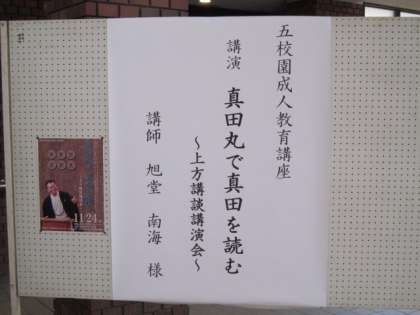 五校園成人教育講座
講演 真田丸で真田を読む
～上方講談講演会～
講師 旭堂 南海 様
11/24